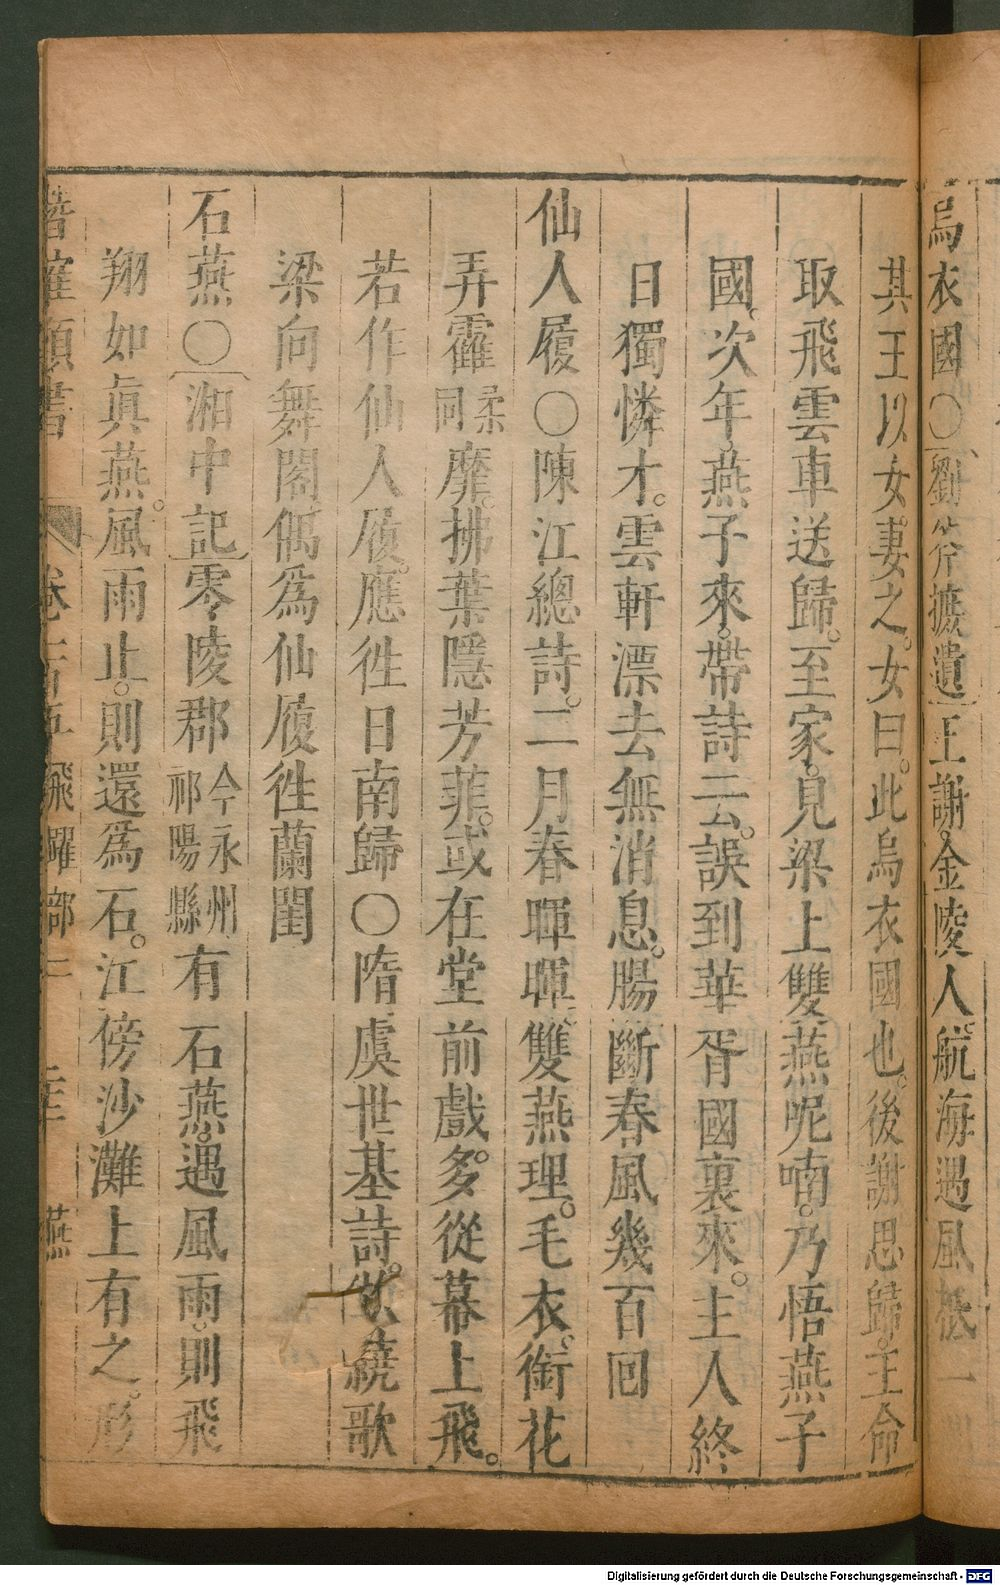 烏衣國○劉斧摭遺王謝金陵人航海遇風抵一
其王以女妻之。女曰。此烏衣國也。後謝思歸。王命
取飛雲車送歸。至家。見梁上雙燕呢喃。乃悟燕子
國。次年燕子來。帶詩云。誤到華胥國裏來。主人終
日獨憐才。雲軒漂去無消息。腸斷春風幾百回
仙人履○陳江總詩。二月春暉暉。雙燕理。毛衣。銜花
弄藿柔同靡。拂葉隱芳菲。或在堂前戲。多從幕上飛。
若作仙人履。應徃日南歸○隋虞世基詩。繞歌
梁向舞閣偶為仙履徃蘭閨
石燕○湘中記零陵郡今永州祁陽縣有石燕。遇風雨。則飛
翔如眞燕。風雨止。則還為石。江傍沙灘上有之。形
潛確類書 卷一百五 飛躍部二 燕
Digitalisierung gefördert durch die Deutsche Forschungsgemeinschaft - DFG